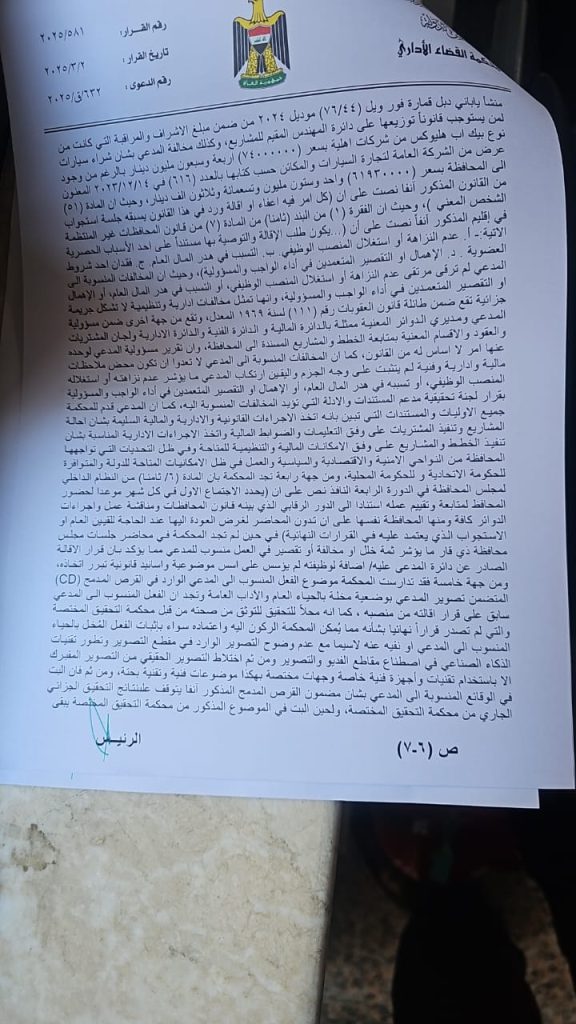 رقم القـرار: ٢٠٢٥/٥٨١
تاريخ القرار: ٢٠٢٥/٣/٢
رقم الدعوى: ٦٣٢/ق/٢٠٢٥
محكمة القضاء الأداري
منشأ ياباني دبل قمارة فور ويل (٧٦/٤٤) موديل ٢٠٢٤ من ضمن مبلغ الاشراف والمراقبة التي كانت من
لمن يستوجب قانوناً توزيعها على دائرة المهندس المقيم للمشاريع، وكذلك مخالفة المدعي بشأن شراء سيارات
نوع بيك اب هليوكس من شركات اهلية بسعر (٧٤٠٠٠٠٠٠) اربعة وسبعون مليون دينار بالرغم من وجود
عرض من الشركة العامة لتجارة السيارات والمكائن حسب كتابها بالعدد (٦١٦) في ٢٠٢٣/١٢/١٤ المعنون
الى المحافظة بسعر (٦١٩٣٠٠٠٠) واحد وستون مليون وتسعمائة وثلاثون الف دينار، وحيث ان المادة (٥١)
من القانون المذكور آنفاً نصت على أن (كل امر فيه اعفاء او اقالة ورد في هذا القانون يسبقه جلسة استجواب
الشخص المعني)، وحيث ان الفقرة (١) من البند (ثامنا) من المادة (٧) من قانون المحافظات غير المنتظمة
في إقليم المذكور آنفاً نصت على أن (...يكون طلب الإقالة والتوصية بها مستنداً على احد الأسباب الحصرية
الآتية:- أ. عدم النزاهة أو استغلال المنصب الوظيفي. ب. التسبب في هدر المال العام. ج. فقدان احد شروط
العضوية. د. الإهمال او التقصير المتعمدين في أداء الواجب والمسؤولية)، وحيث ان المخالفات المنسوبة الى
المدعي لم ترقى مرتقى عدم النزاهة أو استغلال المنصب الوظيفي، أو التسبب في هدر المال العام، أو الإهمال
او التقصير المتعمدين في أداء الواجب والمسؤولية، وانها تمثل مخالفات ادارية وتنظيمية لا تشكل جريمة
جزائية تقع ضمن طائلة قانون العقوبات رقم (١١١) لسنة ١٩٦٩ المعدل، وتقع من جهة اخرى ضمن مسؤولية
المدعي ومديري الدوائر المعنية ممثلة بالدائرة المالية و الدائرة الفنية والدائرة الادارية ولجان المشتريات
والعقود والاقسام المعنية بمتابعة الخطط والمشاريع المسندة الى المحافظة، وان تقرير مسؤولية المدعي لوحده
عنها امر لا اساس له من القانون، كما ان المخالفات المنسوبة الى المدعي لا تعدوا ان تكون محض ملاحظات
مالية وادارية وفنية لم يتثبت على وجه الجزم واليقين ارتكاب المدعي ما يؤشر عدم نزاهته أو استغلاله
المنصب الوظيفي، أو تسببه في هدر المال العام، أو الإهمال او التقصير المتعمدين في أداء الواجب والمسؤولية
بقرار لجنة تحقيقية مدعم المستندات والادلة التي تؤيد المخالفات المنسوبة اليه، كما ان المدعي قدم للمحكمة
جميع الاوليات والمستندات التي تبين بانه اتخذ الاجراءات القانونية والادارية والمالية السليمة بشأن احالة
المشاريع وتنفيذ المشتريات على وفق التعليمات والضوابط المالية واتخذ الاجراءات الادارية المناسبة بشأن
تنفيذ الخطط والمشاريع على وفق الامكانات المالية و التنظيمية للمتاحة وفي ظل التحديات التي تواجهها
المحافظة من النواحي الامنية والاقتصادية والسياسية والعمل في ظل الامكانيات المتاحة للدولة والمتوافرة
للحكومة الاتحادية و للحكومة المحلية، ومن جهة رابعة تجد المحكمة بان المادة (٦/ ثامنا) من النظام الداخلي
لمجلس المحافظة في الدورة الرابعة النافذ نص على ان (يحدد الاجتماع الاول في كل شهر موعدا لحضور
المحافظ لمتابعة وتقييم عمله استنادا الى الدور الرقابي الذي بينه قانون المحافظات ومناقشة عمل واجراءات
الدوائر كافة ومنها المحافظة نفسها على ان تدون المحاضر لغرض العودة اليها عند الحاجة للتقيين العام او
الاستجواب الذي يعتمد عليه في القرارات النهائية) في حين لم تجد المحكمة في محاضر جلسات مجلس
محافظة ذي قار ما يؤشر ثمة خلل او مخالفة أو تقصير في العمل منسوب للمدعي مما يؤكد بان قرار الاقالة
الصادر عن دائرة المدعي عليه/ اضافة لوظيفته لم يؤسس على اسس موضوعية واسانيد قانونية تبرر اتخاذه،
ومن جهة خامسة فقد تدارست المحكمة موضوع الفعل المنسوب الى المدعي الوارد في القرص المدمج (CD)
المتضمن تصوير المدعي بوضعية مخلة بالحياء العام والآداب العامة وتجد ان الفعل المنسوب الى المدعي
سابق على قرار اقالته من منصبه، كما انه محلاً للتحقيق للتوثق من صحته من قبل محكمة التحقيق المختصة
والتي لم تصدر قراراً نهائيا بشأنه مما يُمكن المحكمة الركون اليه واعتماده سواء باثبات الفعل المُخل بالحياء
المنسوب الى المدعي او نفيه عنه لاسيما مع عدم وضوح التصوير الوارد في مقطع التصوير وتطور تقنيات
الذكاء الصناعي في اصطناع مقاطع الفديو والتصوير ومن ثم اختلاط التصوير الحقيقي من التصوير المفبرك
الا باستخدام تقنيات وأجهزة فنية خاصة وجهات مختصة بهكذا موضوعات فنية وتقنية بحتة، ومن ثم فان البت
في الوقائع المنسوبة الى المدعي بشان مضمون القرص المدمج المذكور آنفا يتوقف علىنتائج التحقيق الجزائي
الجاري من محكمة التحقيق المختصة، ولحين البت في الموضوع المذكور من محكمة التحقيق المختصة يبقى
الرئيس
ص (٦-٧)